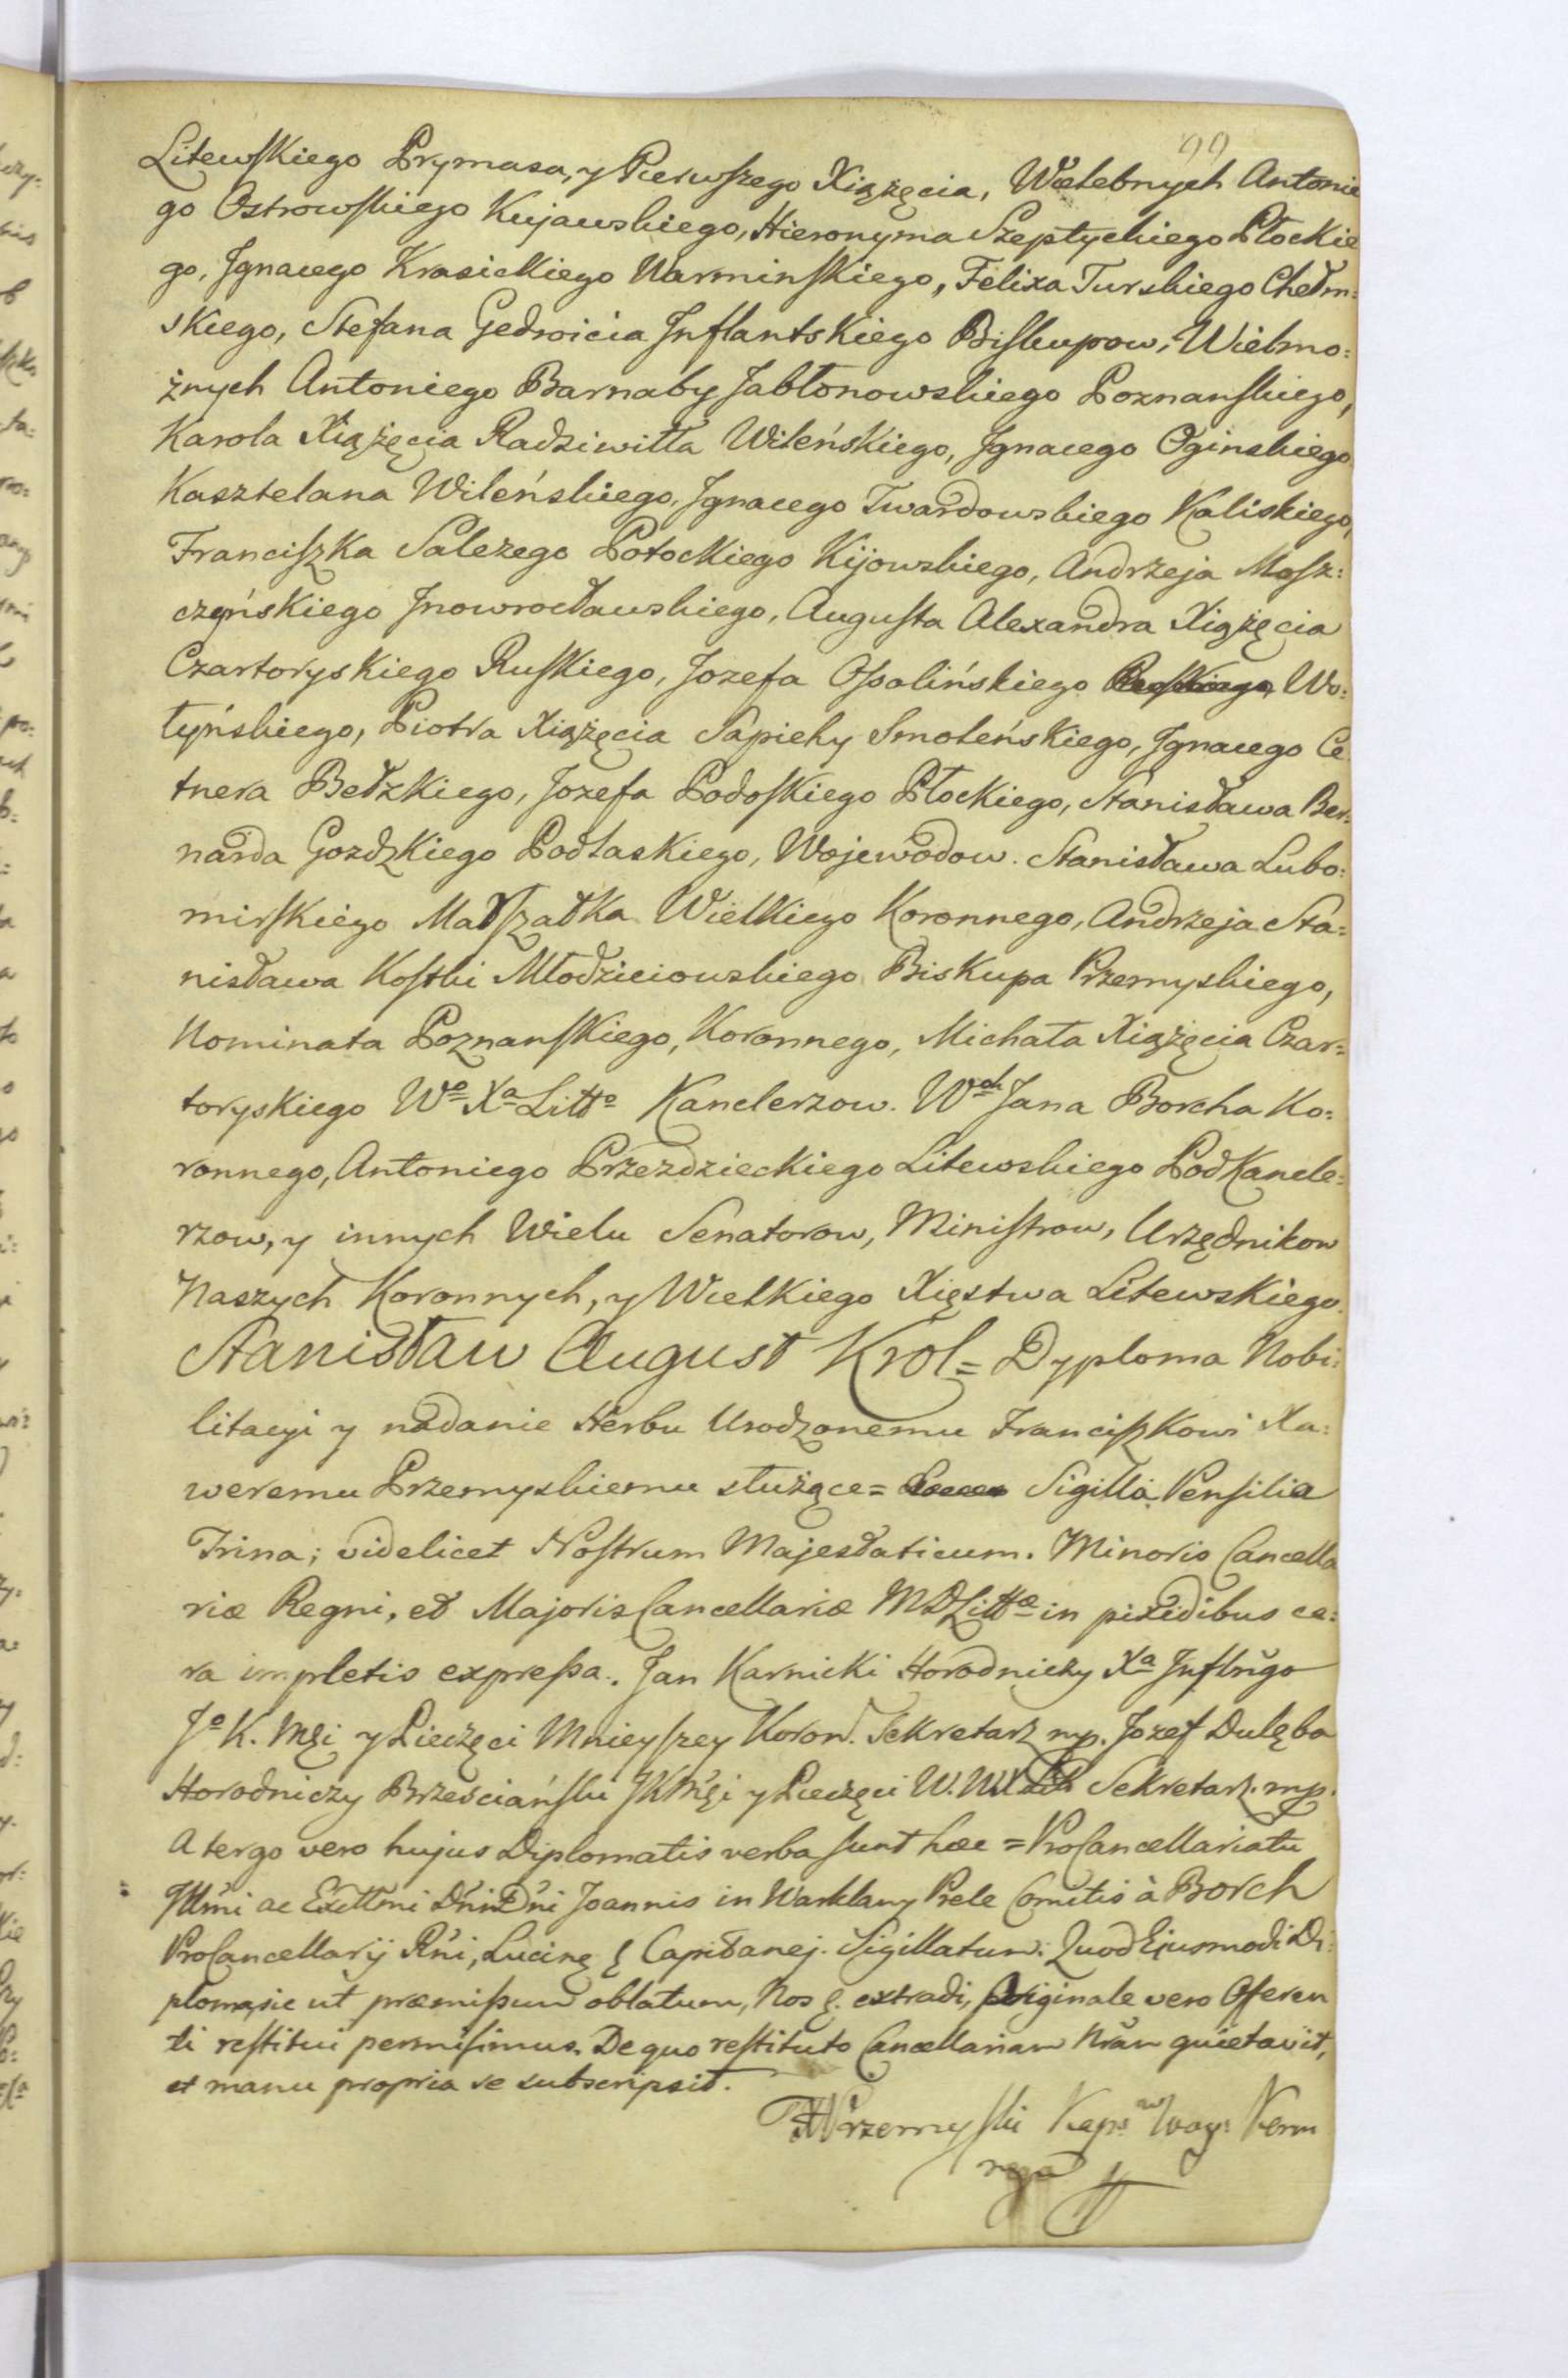 99
Litewskiego Prymasa, y Pierwszego Xiążęcia, Wielebnych Antonie
go Ostrowskiego Kujawskiego, Hieronyma Szeptyckiego Płockie
go, Jgnacego Krasickiego Warminskiego, Felixa Turskiego Chełm:
skiego, Stefana Gedroicia Jnflantskiego Biskupow, Wielmo:
żnych Antoniego Barnaby Jabłonowskiego Poznanskiego,
Karola Xiążęcia Radziwiłła Wileńskiego, Jgnacego Oginskiego
Kasztelana Wileńskiego, Jgnacego Twardowskiego Kaliskiego,
Franciszka Salezego Potockiego Kijowskiego, Andrzeja Mosz:
czyńskiego Jnowrocławskiego, Augusta Alexandra Xiążęcia
Czartoryskiego Ruskiego, Jozefa Ossolińskiego Wo:
łyńskiego, Piotra Xiążęcia Sapiehy Smoleńskiego, Jgnacego Ce
tnera Bełzkiego, Jozefa Podoskiego Płockiego, Stanisława Ber:
narda Gozdzkiego Podlaskiego, Wojewodow. Stanisława Lubo:
mirskiego Marszałka Wielkiego Koronnego, Andrzeja Sta=
nisława Kostki Młodzieiowskiego Biskupa Przemyskiego,
Nominata Poznanskiego, Koronnego, Michała Xiążęcia Czar=
toryskiego Wo Xa Litto Kanclerzow. Wch Jana Borcha Ko:
ronnego, Antoniego Przezdzieckiego Litewskiego PodKancle=
rzow, y innych Wielu Senatorow, Ministrow, Urzędnikow
Naszych Koronnych, y Wielkiego Xięstwa Litewskiego.
Stanisław August Krol = Dyploma Nobi:
litacyi y nadanie Herbu Urodzonemu Franciszkowi Xa:
weremu Przemyskiemu służące = Sigilla Pensilia
Trina; videlicet Nostrum Majestaticum. Minoris Cancella
riæ Regni, et Majoris Cancellariæ MDLittæ in pixidibus ce:
ra impletis expressa. Jan Karnicki Horodniczy Xa Jnflngo
Jo K. Mći y Pieczęci Mnieyszey Koron. Sekretarz mp. Jozef Dulęba
Horodniczy Brzesciański JKMći y Pieczęci W. WXLit Sekretarz. mp.
A tergo vero hujus Diplomatis verba sunt hæc = ProCancellariatu
Jllmi ac Excellmi Dni Dni Joannis in Warklany Prele Comitis à Borch
ProCancellarij Rni, Lucinę & Capitanej. Sigillatum. Quod Ejusmodi Di:
ploma, sic ut præmissum oblatum, Nos &. extradi, Originale vero Oferen
ti restitui permisimus. De quo restituto Cancellariam Nram quietavit,
et manu propria se subscripsit.
FXPrzemyski Kap: Woy: Koron
mpa